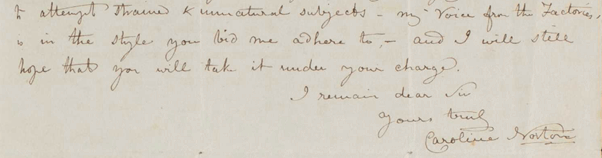 to attempt strained & unnatural subjects – my Voice from the Factories,
is in the style you bid me adhere to, – and I will still
hope that you will take it under your charge.
I remain dear Sir
Yours truly
Caroline Norton